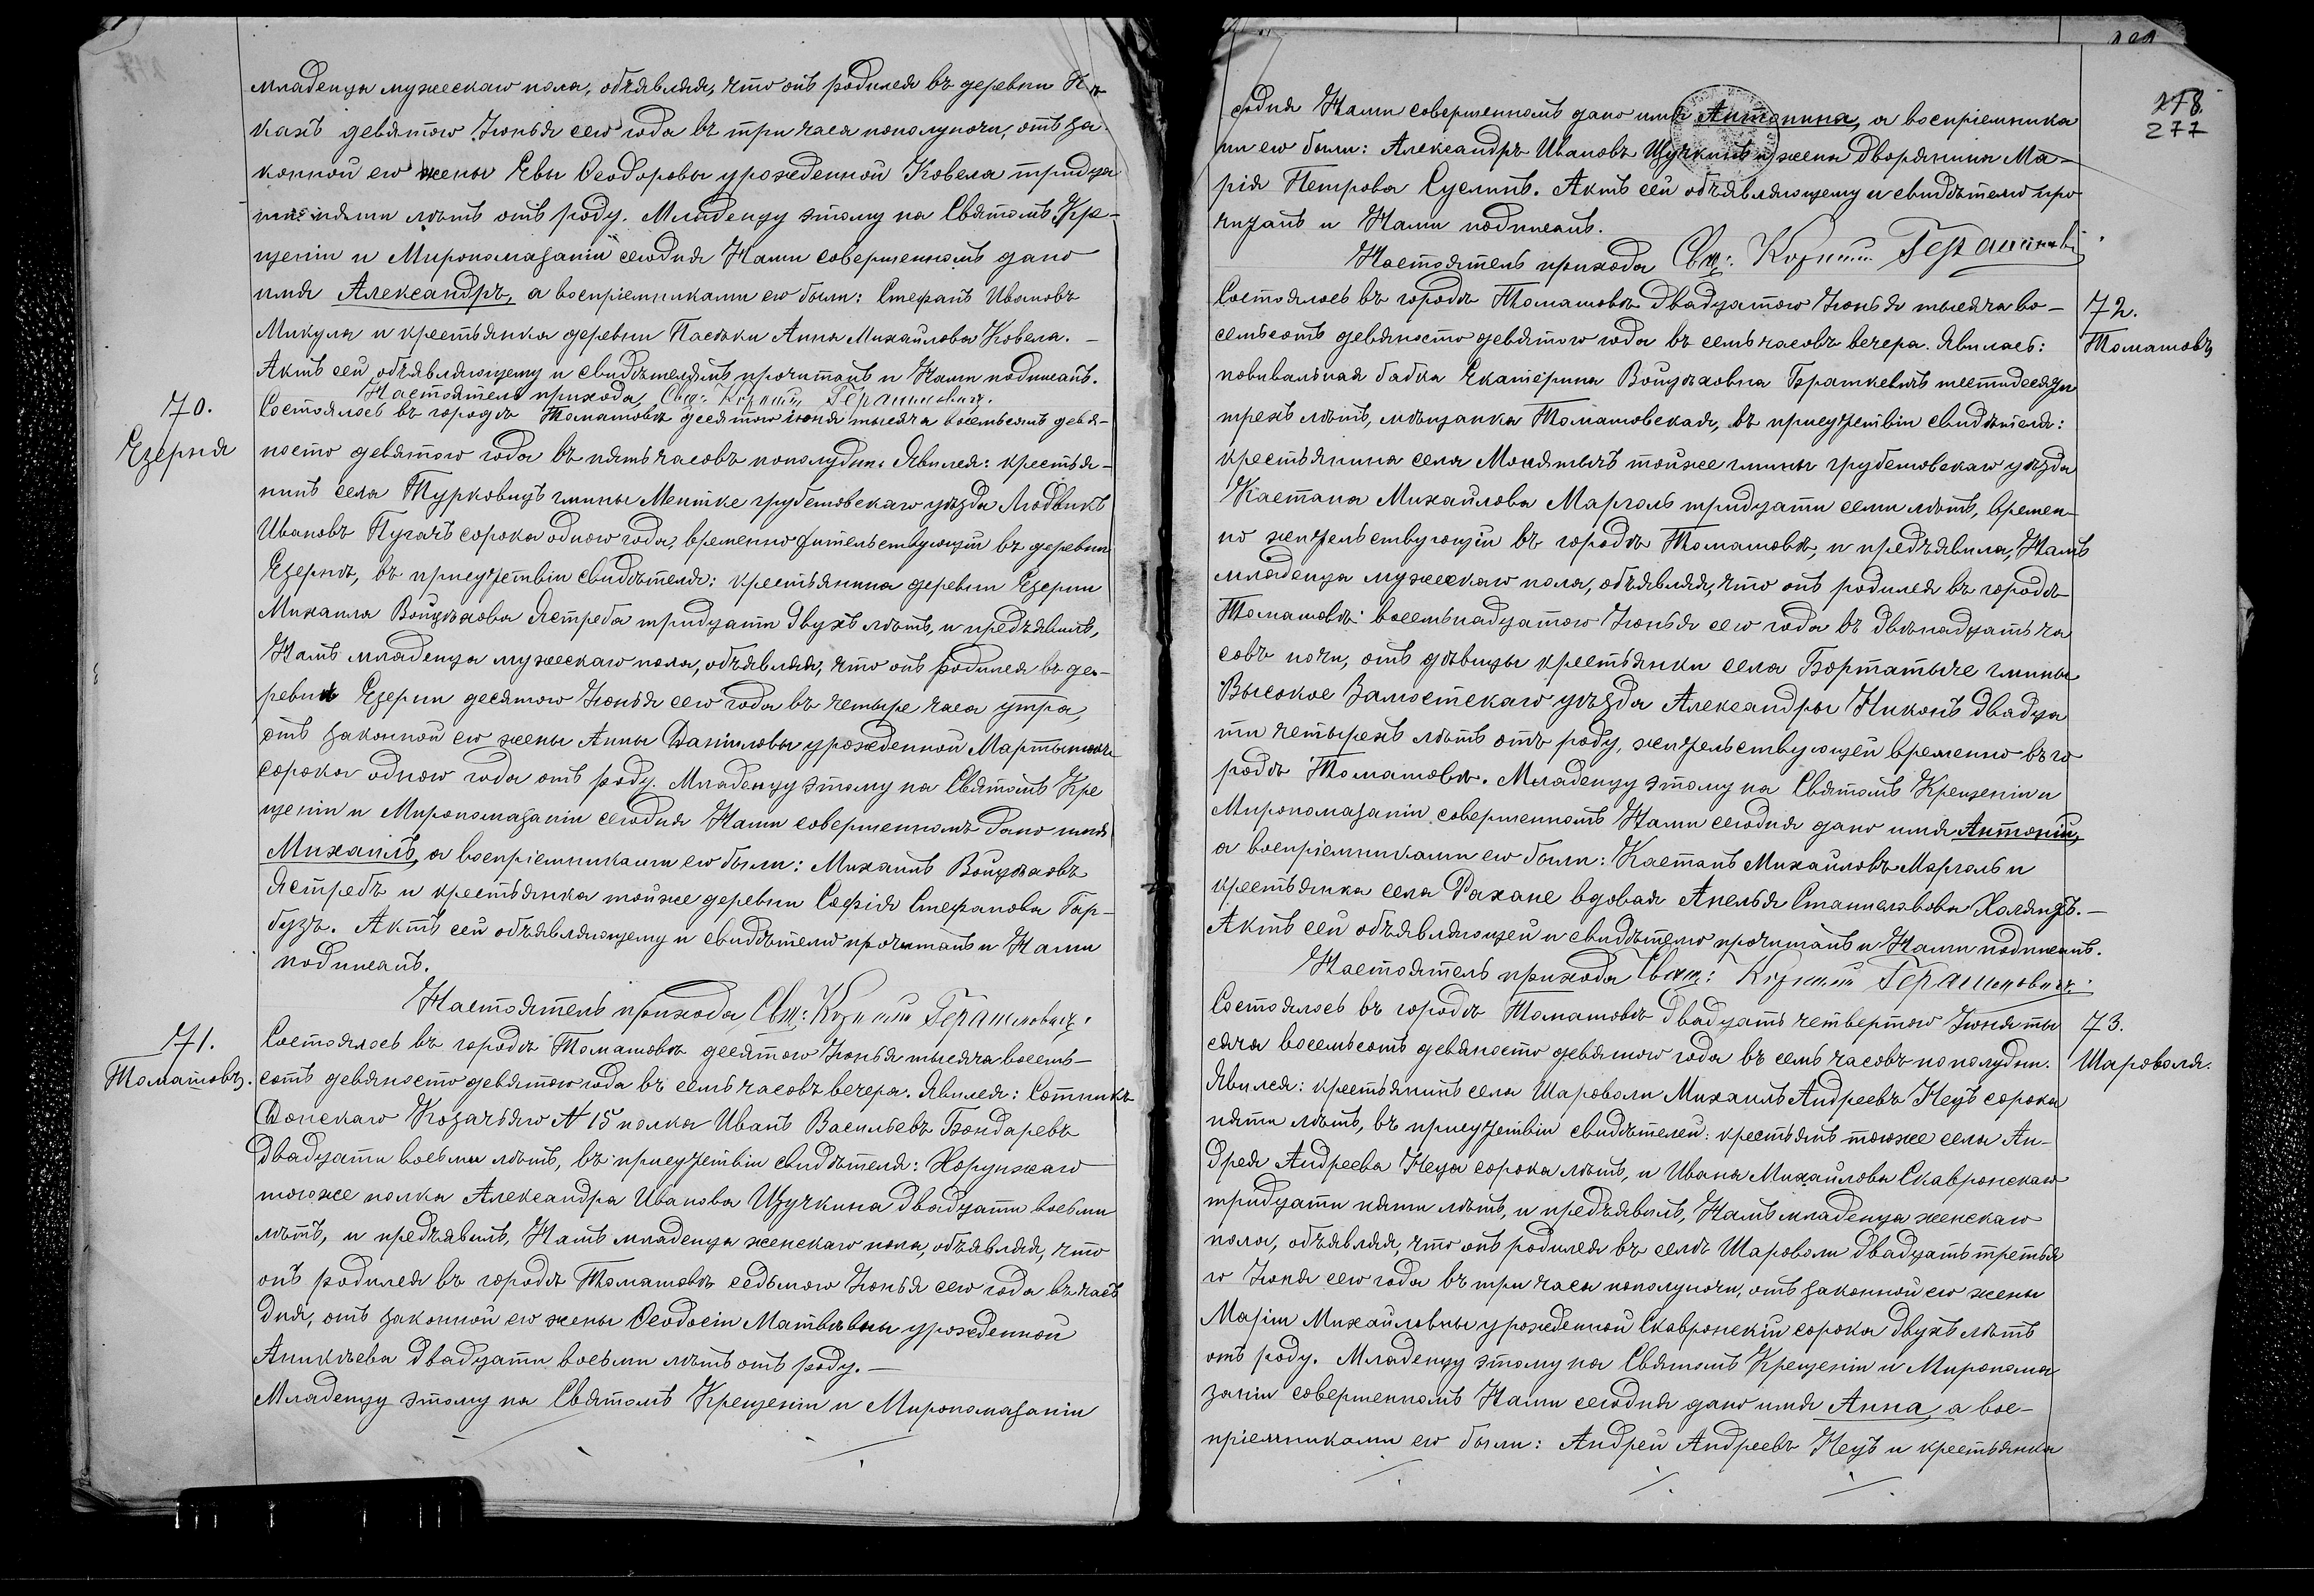 младенца мужескаго пола, объявляя, что онъ родился въ деревни
кахъ девятого Іюнья сего года въ три часа пополуночи, отъ за-
конной его жены Евы Ѳеодоровы урожденной Ковела тридца
пяти лѣтъ отъ роду. Младенцу этому на Святомъ Кре-
щеніи и Миропомазаніи сегодня Нами совершенномъ дано
имя Александръ, а воспріемниками его были: Стефанъ Ивановъ
Микула и крестьянка деревни Пасѣки Анна Михайлова Ковела. —
Актъ сей объявляющему и свидѣтелямъ прочитанъ и Нами подписанъ.
Настоятель прихода, Свщ:
70.
Езерня
Состоялось въ городѣ Томашовѣ десятого Іюня тысяча восемьсотъ девя-
носто девятого года въ пять часовъ пополудни. Явился: крестья-
нинъ села Турковицъ гмины Менткe грубешовскаго уѣзда Людвикъ
Ивановъ Пугачъ сорока одного года, временно жительствующій въ деревни
Езернѣ, въ присутствіи свидѣтеля: крестьянина деревни Езерни
Михаила Войцѣхова Ястреба тридцати двухъ лѣтъ, и предъявилъ,
Намъ младенца мужескаго пола, объявляя, что онъ родился въ де-
ревни Езерни десятого Іюнья сего года въ четыре часа утра,
отъ законной его жены Анны Даніиловы урожденной
сорока одного года отъ роду. Младенцу этому на Святомъ Кре
щеніи и Миропомазаніи сегодня Нами совершенномъ дано имя
Михаилъ, а воспріемниками его были: Михаилъ Войцѣховъ
Ястребъ и крестьянка тойже деревни Софія Стефанова Гар-
бузъ. Актъ сей объявляющему и свидѣтелю прочитанъ и Нами
подписанъ.
Настоятель прихода, Свщ: Герашимовичъ.
71.
Томашовъ.
Состоялось въ городѣ Томашовѣ десятого Іюнья тысяча восемь-
сотъ девяносто девятого года въ семь часовъ вечера. Явился: Сотникъ
Донскаго Козачьяго № 15 полка Иванъ Васильевъ Бондаревъ
двадцати восьми лѣтъ, въ присутствіи свидѣтеля: Хорунжаго
тогоже полка Александра Иванова Щучкина двадцати восьми
лѣтъ, и предъявилъ, Намъ младенца женскаго пола, объявляя, что
онъ родился въ городѣ Томашовѣ седьмого Іюнья сего года въ часъ
дня, отъ законной его жены Ѳеодосіи Матвѣевны урожденной
Аникѣева двадцати восьми лѣтъ отъ роду. —
Младенцу этому на Святомъ Крещеніи и Миропомазаніи
278
277
годня Нами совершенномъ дано имя Антонина, а воспріемника
ми его были: Александръ Ивановъ Щучкинъ и жена дворянина Ма-
рія Петрова Суслинъ. Актъ сей объявляющему и свидѣтелю про
читанъ и Нами подписанъ.
Настоятель прихода Свщ:
72.
Томашовъ
Состоялось въ городѣ Томашовѣ двадцатого Іюнья тысяча во-
семьсотъ девяносто девятого года въ семь часовъ вечера. Явилась:
повивальная бабка Екатерина Войцѣховна Браткевичъ шестидесяти
трехъ лѣтъ, мѣщанка Томашовская, въ присутствіи свидѣтеля:
крестьянина села Монятычъ тойже гмины грубешовскаго уѣзда
Каетана Михайлова Марголь тридцати семи лѣтъ, времен-
но жительствующій въ городѣ Томашовѣ, и предъявила, Намъ
младенца мужескаго пола, объявляя, что онъ родился въ городѣ
Томашовѣ восемьнадцатого Іюнья сего года въ двѣнадцать ча
совъ ночи, отъ дѣвицы крестьянки села Бортатыче гмины
Высокое Замостскаго уѣзда Александры Никонъ двадца
ти четырехъ лѣтъ отъ роду, жительствующей временно въ го
родѣ Томашовѣ. Младенцу этому на Святомъ Крещеніи и
Миропомазаніи совершенномъ Нами сегодня дано имя Антоній,
а воспріемниками его были: Каетанъ Михайловъ Марголь и
крестьянка села Рахане вдовая Анелья Станиславова —
Актъ сей объявляющей и свидѣтелю прочитанъ и Нами подписанъ.
Настоятель прихода Свщ: Герашимовичъ.
73.
Шароволя.
Состоялось въ городѣ Томашовѣ двадцать четвертого Іюня ты
сяча восемьсотъ девяносто девятого года въ семь часовъ пополудни.
Явился: крестьянинъ села Шароволи Михаилъ Андреевъ Неуъ сорока
пяти лѣтъ, въ присутствіи свидѣтелей: крестьянъ тогоже села Ан-
дрея Андреева сорока лѣтъ, и Ивана Михайлова Скавронскаго
тридцати пяти лѣтъ, и предъявилъ, Намъ младенца женскаго
пола, объявляя, что онъ родился въ селѣ Шароволи двадцать третья
го Іюня сего года въ три часа пополуночи, отъ законной его жены
Маріи Михайловны урожденной Скавронскій сорока двухъ лѣтъ
отъ роду. Младенцу этому на Святомъ Крещеніи и Миропома
заніи совершенномъ Нами сегодня дано имя Анна, а вос-
пріемниками его были: Андрей Андреевъ и крестьянка